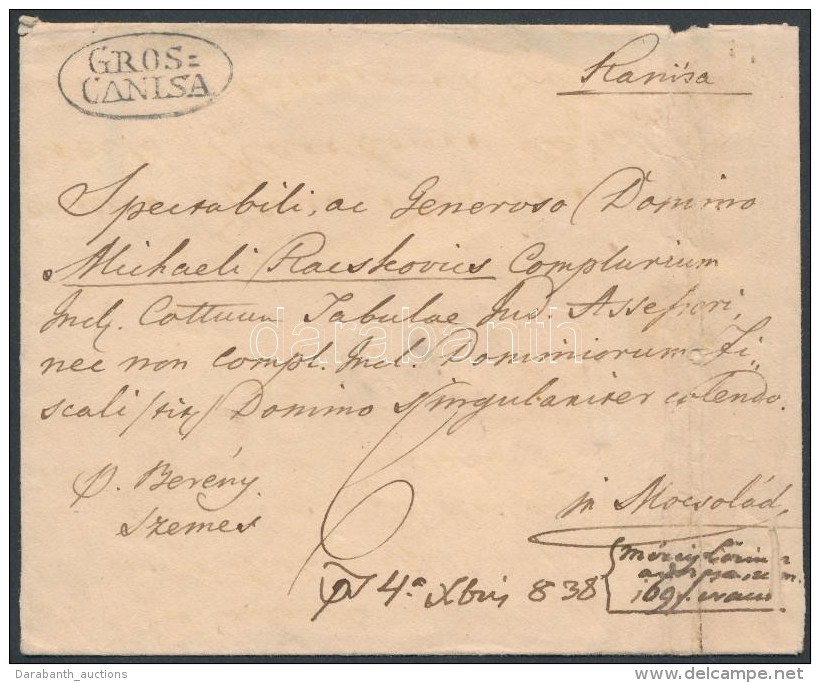 GROS=
CANISA
Kanisa
Spectabili, ac Generoso Domino
Michaeli Racskovics Complurium
Incl. Cottuum Tabulae Jud. Assessori,
nec non compl. Incl. Dominiorum Fi„
scali /tit/ Domino singulariter colendo.
p. Berény
Szemes
in Mocsolád
4a Xbris 838
darabanth
Darabanth_auctions
www.delcampe.net